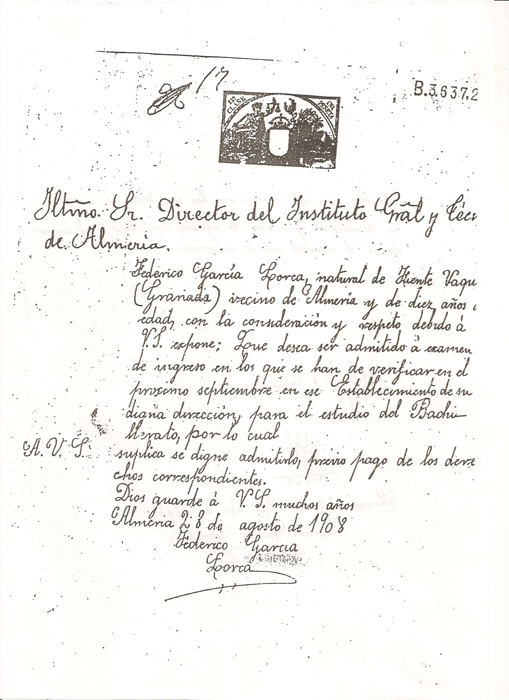 17
B.3.637.2
Iltmo. Sr. Director del Instituto Gral y Téc
de Almería.
Federico García Lorca, natural de Fuente Vaqu
(Granada) vecino de Almería y de diez años
edad, con la consideración y respeto debido á
V.S. expone; Que desea ser admitido á examen
de ingreso en los que se han de verificar en el
próximo septiembre en ese Establecimiento de su
digna dirección, para el estudio del Bachi
llerato, por lo cual
A. V. S.
suplica se digne admitirlo, previo pago de los dere
chos correspondientes.
Dios guarde á V. S. muchos años
Almería 28 de agosto de 1908
Federico García
Lorca